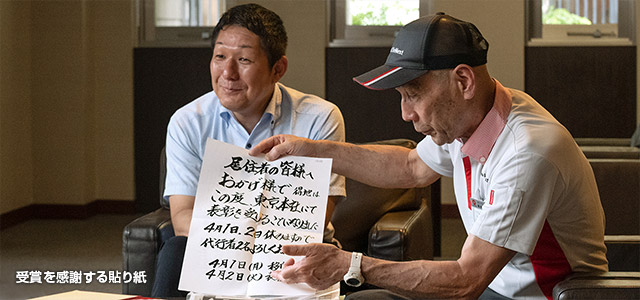 居住者の皆様へ
おかげ様で
この度、東京本社にて
表彰を受けることになりました
4月1日、2日休みますので
代行者
4月1日(月)
4月2日(火)
受賞を感謝する貼り紙